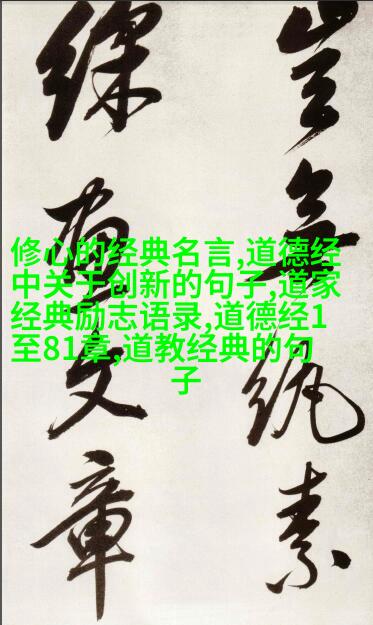 豈無紈素
綵畫文章
修心的经典名言,道德经
中关于创新的句子,道家
经典励志语录,道德经1
至81章,道教经典的句
子